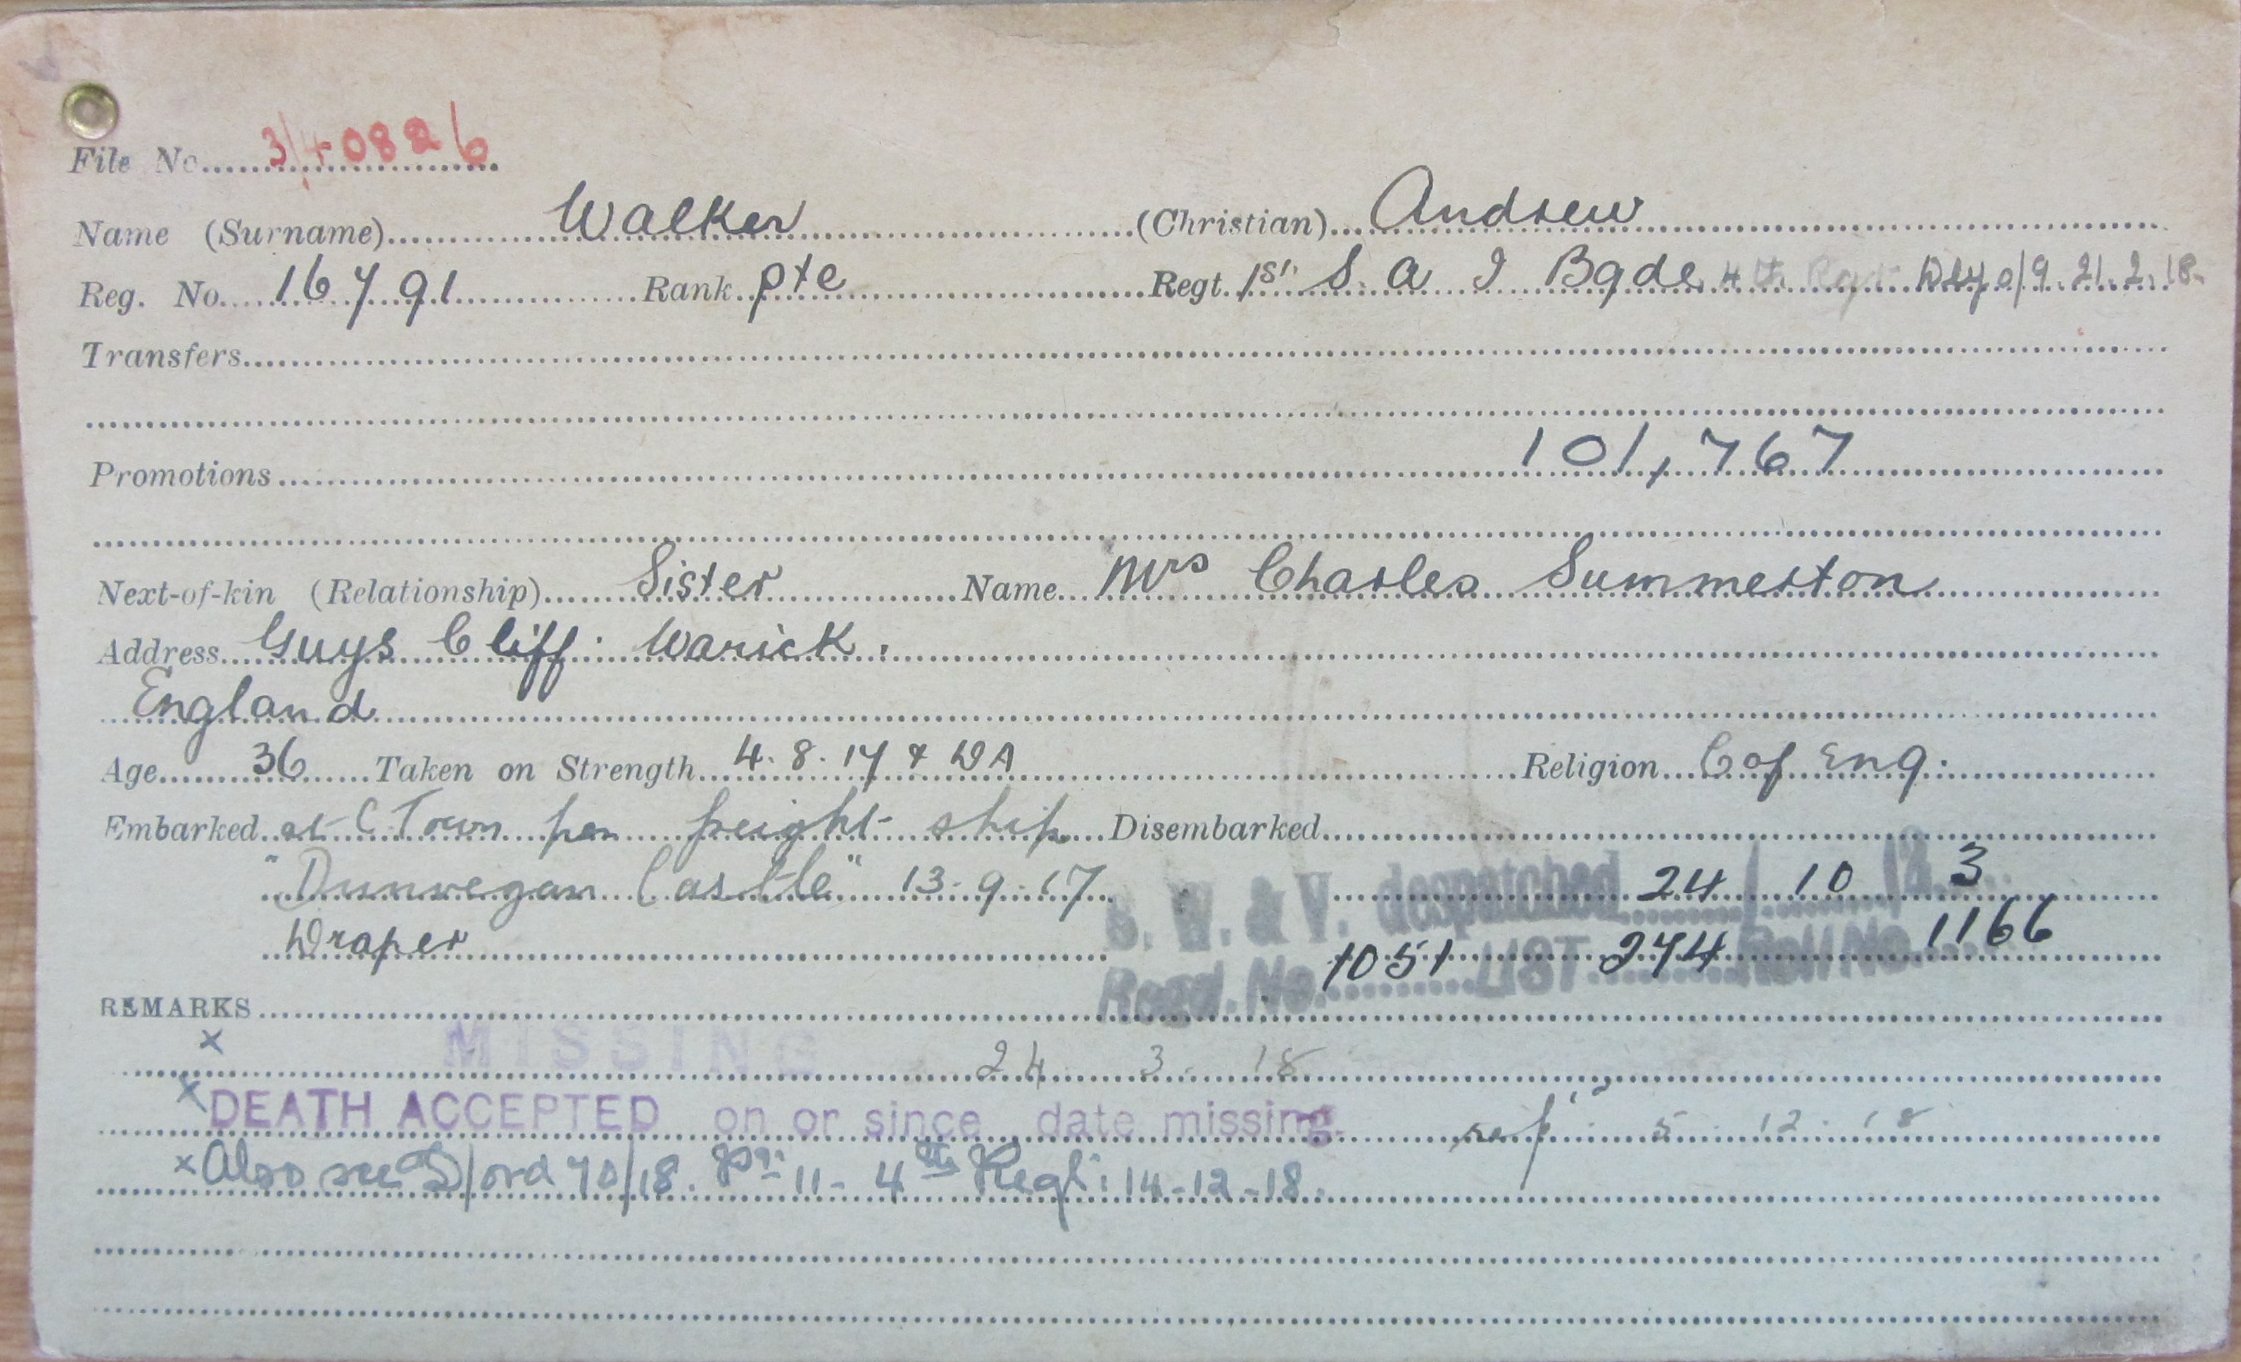 File No. 3/40826
Name (Surname) Walker (Christian) Andrew
Reg. No. 16791 Rank pte Regt. 1st S. A I Bgde 4th Regt. D/y o/9. 21.2.18.
Transfers
101,767
Promotions
Next-of-kin (Relationship) Sister Name Mrs Charles Summerton
Address Guys Cliff. Warick.
England
Age 36 Taken on Strength 4.8.17 & DA Religion C of Eng.
Embarked at C Town per freight ship Disembarked
"Dunvegan Castle" 13-9-17
B. W. & V. despatched 24/10/ 3
Draper
Regd. No. 1051 LIST 274 Roll No. 1166
REMARKS
x MISSING 24 3. 18
x DEATH ACCEPTED on or since date missing. 5. 12. 18
x Also see D/ord 70/18. Pt. 11- 4th Regt: 14-12-18.